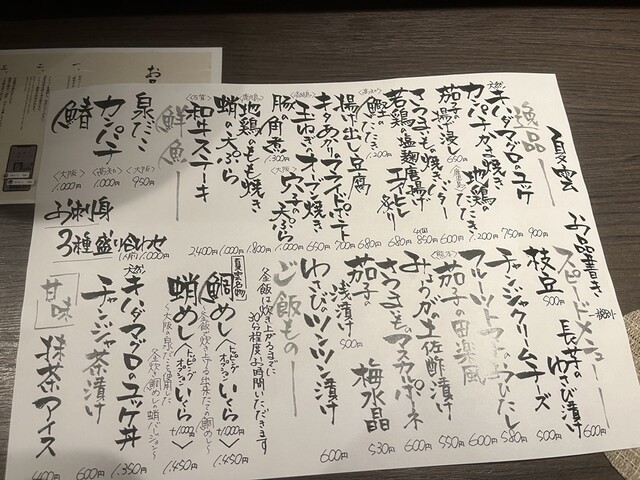 夏雲
お品書き
逸品
天然 キハダマグロのユッケ 900円
カンパチカマ焼き 750円
地鶏のたたき 1,200円
茄子の揚げ浸し 650円
さつまいも焼きバター 600円
若鶏の塩麹唐揚げ 850円
鰹のたたき 1,200円
揚げ出し豆腐 680円
キタあかりのフライドポテト 700円
玉ねぎオーブン焼き 650円
豚の角煮 1,300円
穴子の天ぷら 1,000円
地鶏のもも焼き 1,800円
蛸の天ぷら 1,000円
和牛ステーキ 2400円
鮮魚
泉だこ 〈大阪〉 950円
カンパチ 〈高知〉 1,000円
鰆 〈大阪〉 1,000円
お刺身
3種盛り合わせ 〈1人前〉 1,000円
スピードメニュー
長芋のわさび漬け 600円
枝豆 500円
チャンジャクリームチーズ 500円
フルーツトマトのおひたし 580円
茄子の田楽風 600円
みょうがの土佐酢漬け 550円
さつまいものマスカルポーネ 600円
梅水晶 530円
茄子の浅漬け 500円
わさびのツンツン漬け 600円
ご飯もの
釜飯は炊き上がるまでに
30分程度お時間いただきます
夏雲名物
鯛めし 〈トッピングオプション いくら +1,000円〉 1,450円
〜釜飯で炊き上げる出来たての鯛めし〜
蛸めし 〈トッピングオプション いくら +1,000円〉 1,450円
〜大阪・泉だこを使用した
釜炊き鯛めしの蛸バージョン〜
天然 キハダマグロのユッケ丼 1,350円
チャンジャ茶漬け 600円
甘味
抹茶アイス 400円